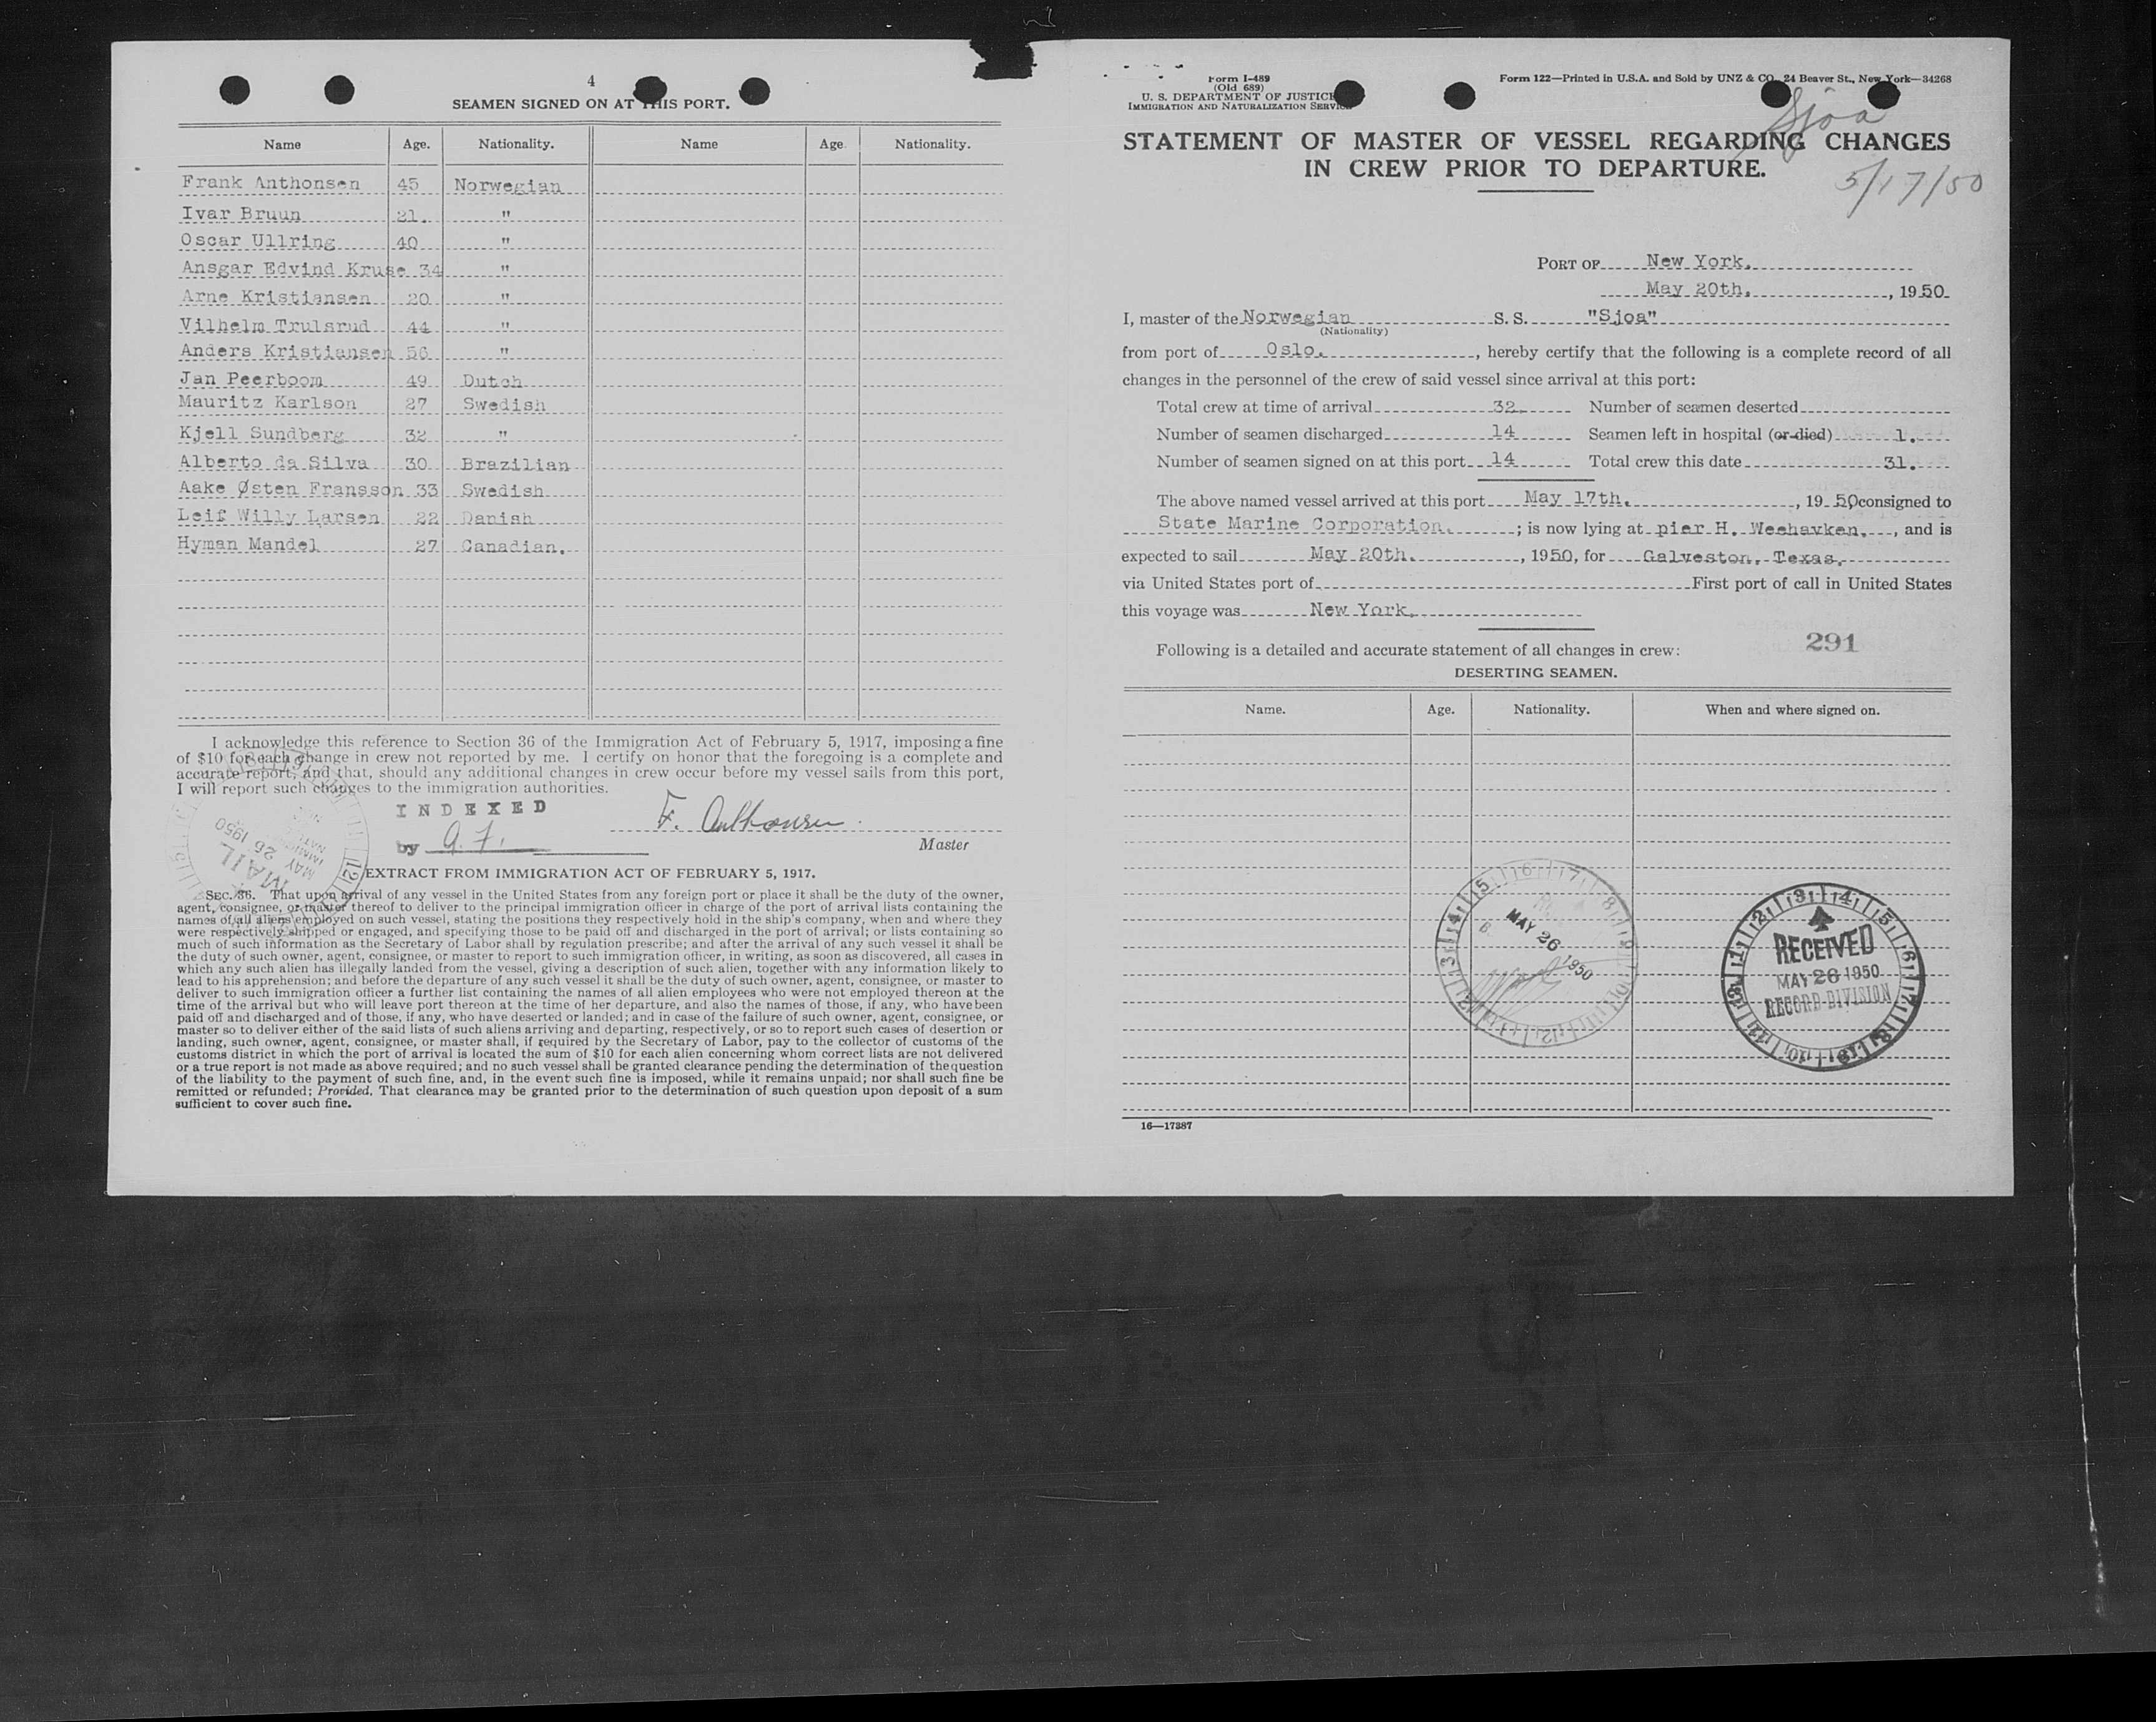 4
SEAMEN SIGNED ON AT THIS PORT.
Name Age. Nationality. Name Age. Nationality.
Frank Anthonsen 45 Norwegian
Ivar Bruun 21. "
Oscar Ullring 40 "
Ansgar Edvind Kruse 34 "
Arne Kristiansen 20 "
Vilhelm Trulsrud 44 "
Anders Kristiansen 56 "
Jan Peerboom 49 Dutch
Mauritz Karlson 27 Swedish
Kjell Sundberg 32 "
Alberto da Silva 30 Brazilian
Aake Østen Fransson 33 Swedish
Leif Willy Larsen 22 Danish
Hyman Mandel 27 Canadian.
I acknowledge this reference to Section 36 of the Immigration Act of February 5, 1917, imposing a fine
of $10 for each change in crew not reported by me. I certify on honor that the foregoing is a complete and
accurate report, and that, should any additional changes in crew occur before my vessel sails from this port,
I will report such changes to the immigration authorities.
INDEXED
by
F. Anthonsen.
Master
MAIL
MAY 26 1950
EXTRACT FROM IMMIGRATION ACT OF FEBRUARY 5, 1917.
SEC. 36. That upon arrival of any vessel in the United States from any foreign port or place it shall be the duty of the owner,
agent, consignee, or master thereof to deliver to the principal immigration officer in charge of the port of arrival lists containing the
names of all aliens employed on such vessel, stating the positions they respectively hold in the ship's company, when and where they
were respectively shipped or engaged, and specifying those to be paid off and discharged in the port of arrival; or lists containing so
much of such information as the Secretary of Labor shall by regulation prescribe; and after the arrival of any such vessel it shall be
the duty of such owner, agent, consignee, or master to report to such immigration officer, in writing, as soon as discovered, all cases in
which any such alien has illegally landed from the vessel, giving a description of such alien, together with any information likely to
lead to his apprehension; and before the departure of any such vessel it shall be the duty of such owner, agent, consignee, or master to
deliver to such immigration officer a further list containing the names of all alien employees who were not employed thereon at the
time of the arrival but who will leave port thereon at the time of her departure, and also the names of those, if any, who have been
paid off and discharged and of those, if any, who have deserted or landed; and in case of the failure of such owner, agent, consignee, or
master so to deliver either of the said lists of such aliens arriving and departing, respectively, or so to report such cases of desertion or
landing, such owner, agent, consignee, or master shall, if required by the Secretary of Labor, pay to the collector of customs of the
customs district in which the port of arrival is located the sum of $10 for each alien concerning whom correct lists are not delivered
or a true report is not made as above required; and no such vessel shall be granted clearance pending the determination of the question
of the liability to the payment of such fine, and, in the event such fine is imposed, while it remains unpaid; nor shall such fine be
remitted or refunded; Provided, That clearance may be granted prior to the determination of such question upon deposit of a sum
sufficient to cover such fine.
Form I-489
(Old 689)
U. S. DEPARTMENT OF JUSTICE
IMMIGRATION AND NATURALIZATION SERVICE
Form 122—Printed in U.S.A. and Sold by UNZ & CO. 24 Beaver St., New York—34268
Sjoa
5/17/50
STATEMENT OF MASTER OF VESSEL REGARDING CHANGES
IN CREW PRIOR TO DEPARTURE.
PORT OF New York.
May 20th. , 1950
I, master of the Norwegian S. S. "Sjoa"
(Nationality)
from port of Oslo. , hereby certify that the following is a complete record of all
changes in the personnel of the crew of said vessel since arrival at this port:
Total crew at time of arrival 32 Number of seamen deserted
Number of seamen discharged 14 Seamen left in hospital (or died) 1.
Number of seamen signed on at this port 14 Total crew this date 31.
The above named vessel arrived at this port May 17th. , 1950 consigned to
State Marine Corporation. ; is now lying at pier H. Weehavken. , and is
expected to sail May 20th. , 1950, for Galveston, Texas.
via United States port of First port of call in United States
this voyage was New York.
Following is a detailed and accurate statement of all changes in crew:
291
DESERTING SEAMEN.
Name. Age. Nationality. When and where signed on.
MAY 26 1950
RECEIVED
MAY 26 1950
RECORD DIVISION
16—17387